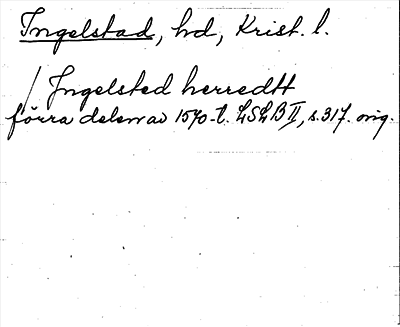 Ingelstad, hd, Krist. l.
/ Ingelsted herredtt
förra delen av 1570-t. LSLB II, s. 317. orig.